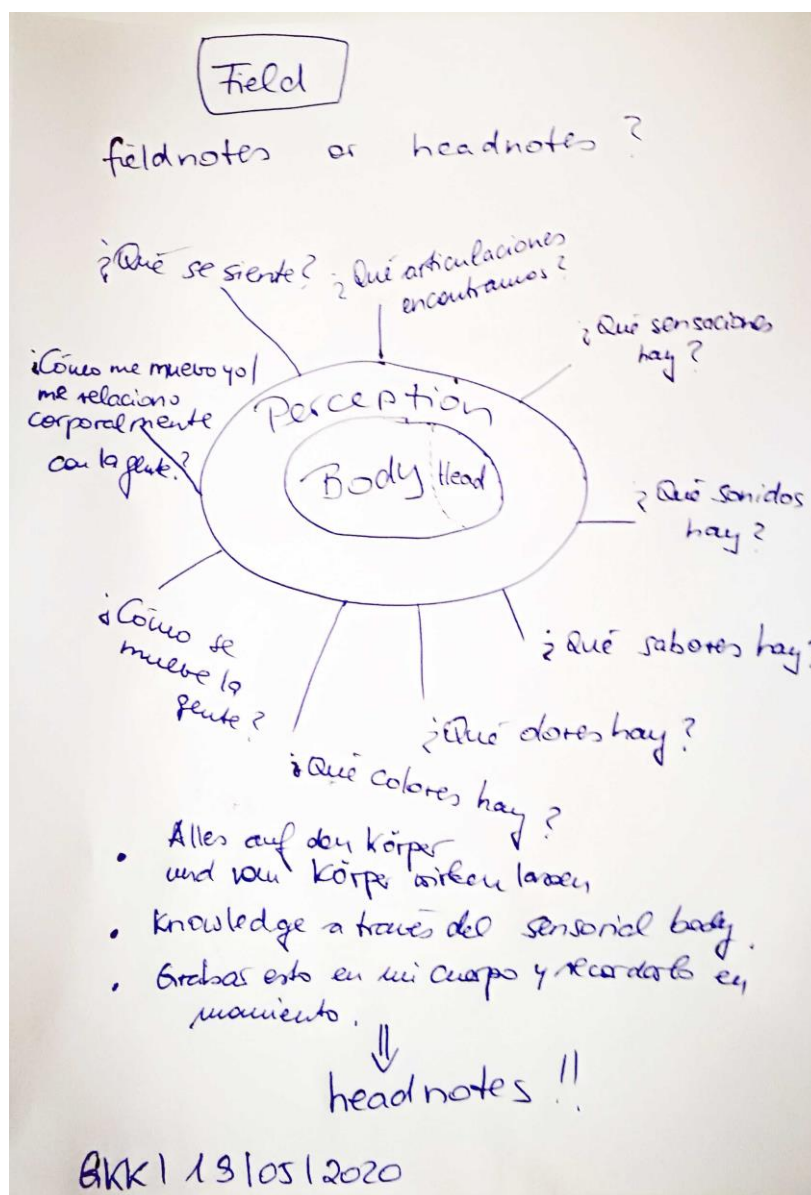 Field
fieldnotes or headnotes ?
¿Qué se siente?
¿Qué articulaciones
encontramos?
¿Qué sensaciones
hay ?
¿Cómo me muevo yo/
me relaciono
corporalmente
con la gente?
Perception
Body Head
¿Qué sonidos
hay ?
¿Cómo se
mueve la
gente ?
¿Qué sabores hay?
¿Qué olores hay ?
¿Qué colores hay ?
• Alles auf den Körper
und vom Körper wirken lassen
• Knowledge a través del sensorial body.
• Grabar esto en mi cuerpo y recordarlo en
movimiento.
⇓
headnotes !!
19/05/2020